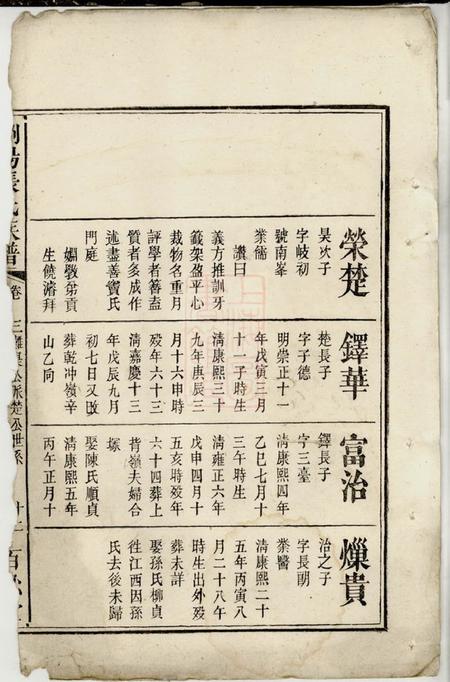 榮楚
昊次子
字岐初
號南峯
業儒
讚曰
義方推訓牙
籤架盈平心
裁物名重月
評學者簪盍
質者多成作
述盡善竇氏
門庭
嫻敎努貢
生饒濬拜
鐸華
楚長子
字子德
明崇正十一
年戊寅三月
十一子時生
淸康熙三十
九年庚辰三
月十六申時
歿年六十三
淸嘉慶十三
年戊辰九月
初七日又改
葬乾冲嶺辛
山乙向
富治
鐸長子
字三臺
淸康熙四年
乙巳七月十
三午時生
淸雍正六年
戊申四月十
五亥時歿年
六十四葬上
背嶺夫婦合
塚
娶陳氏順貞
淸康熙五年
丙午正月十
爍貴
治之子
字長朝
業醫
淸康熙二十
五年丙寅八
月二十八午
時生出外歿
葬未詳
娶孫氏柳貞
徃江西因孫
氏去後未歸
張氏族譜
卷
三
派楚公世系